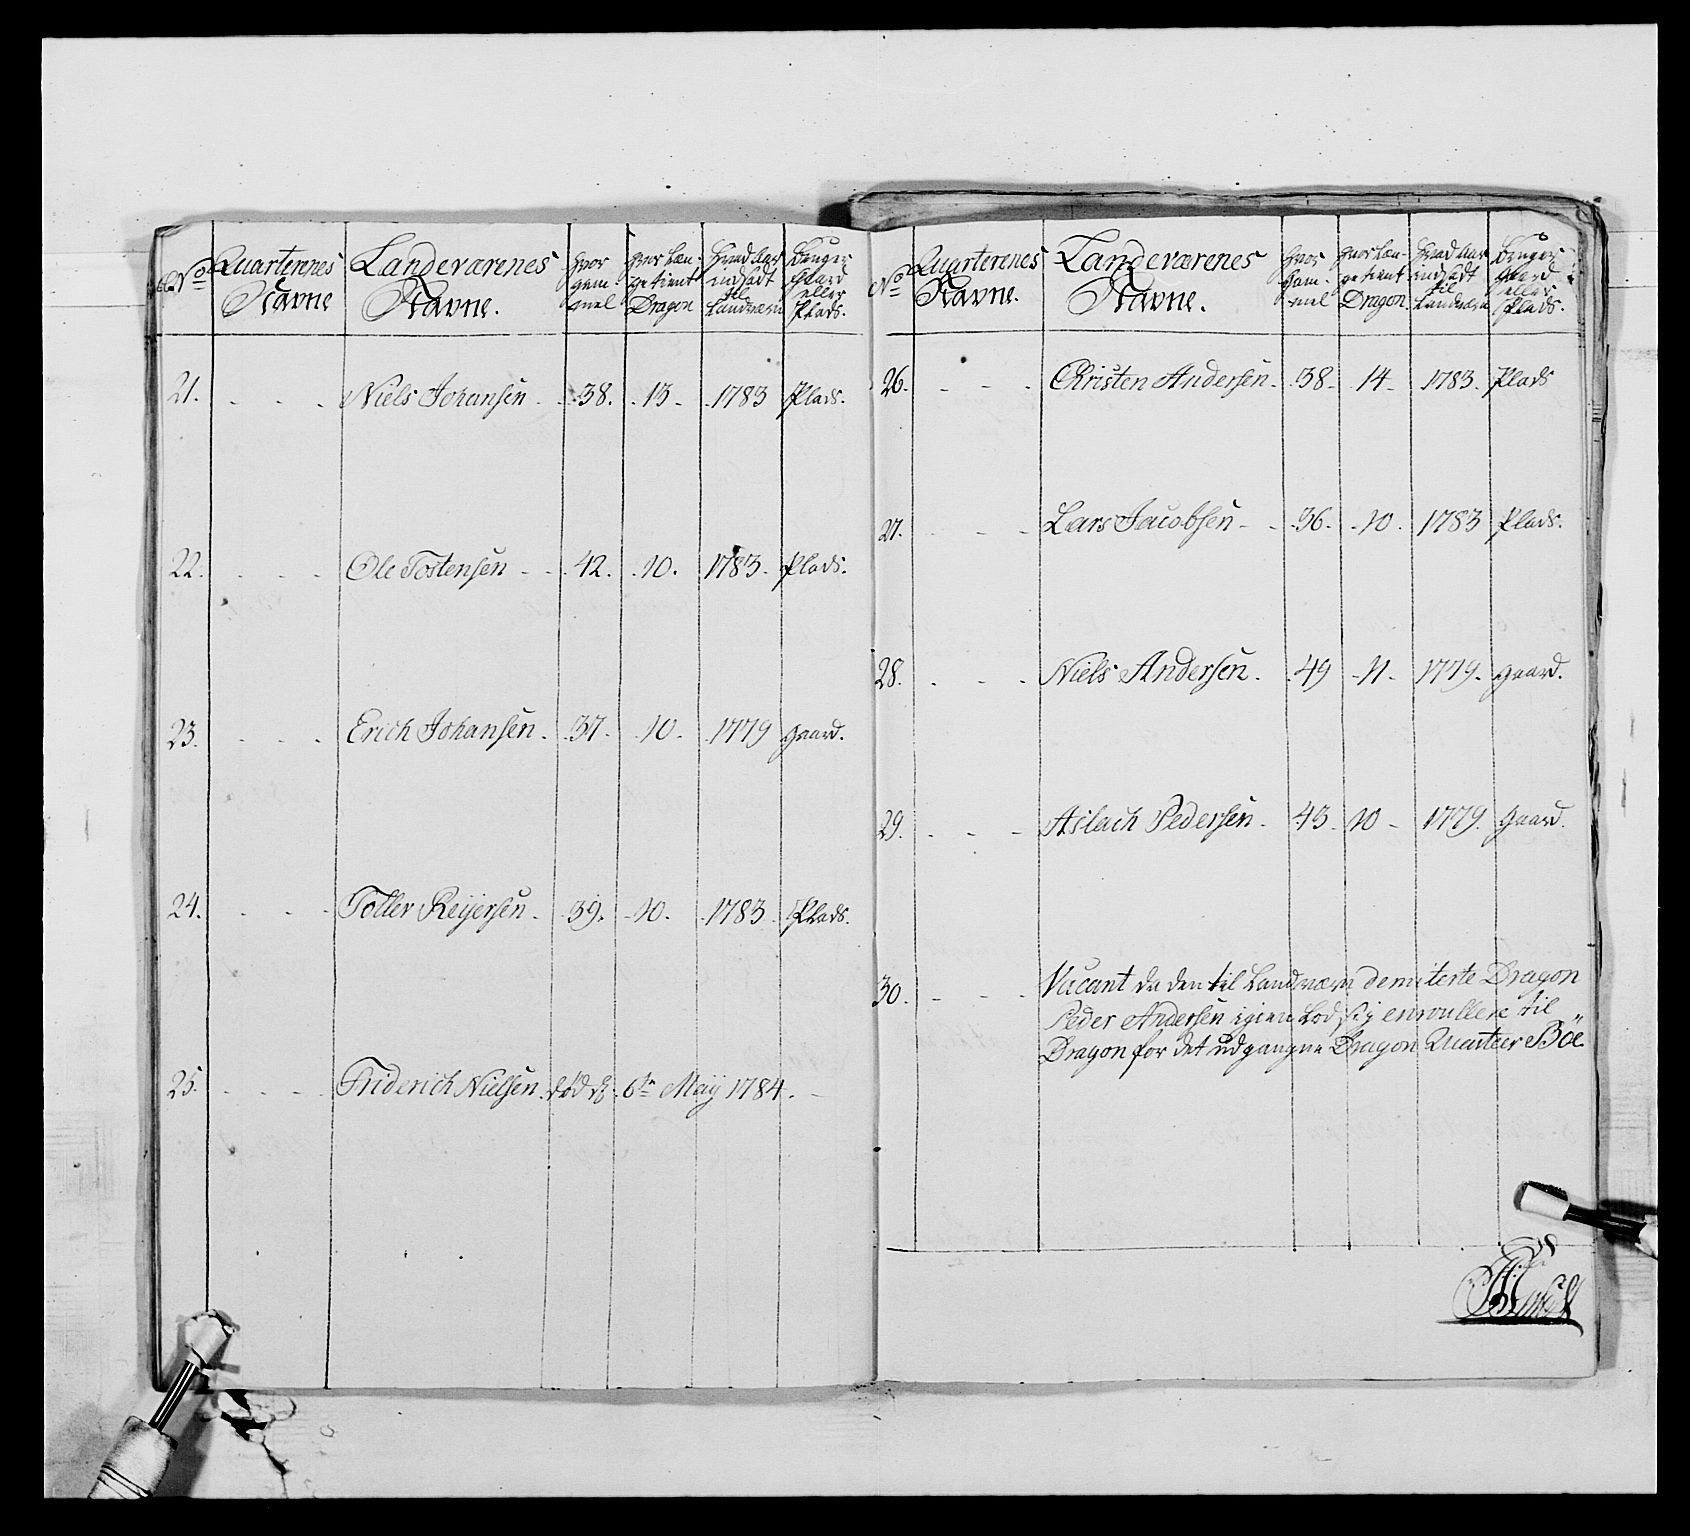 No
Quarterenes
Navne
Landeværenes
Navne.
hvor
gam-
mel
hvor læn-
ge tient
Dragon
Hvad Aar
indsadt
til
Landværn
Bruger
gaard
eller
Plads.
21. - - - Niels Johansen - 38. 13 - 1783 Plads.
22. - - - Ole Tostensen - - 42. 10. 1783. Plads.
23. - - - Erich Johansen. 37. 10. 1779 gaard.
24. - - - Toller Reijersen. 39. 10. 1783. Plads.
25. - - - Friderich Nielsen død d. 6te Maÿ 1784. -
No
Quarterenes
Navne.
Landeværenes
Navne.
hvor
gam-
mel
hvor læn-
ge tient
Dragon.
Hvad Aar
indsadt
til
Landværn
Bruger
gaard
eller
Plads.
26. - - - Christen Andersen. 38. 14 - 1783. Plads
27. - - - Lars Jacobsen - - 36. 10. 1783 Plads.
28. - - - Niels Andersen. 49 11. 1779. gaard.
29. - - - Aslach Pedersen. 43. 10 - 1779. Gaard.
30. - - - Vacant da den til Landværn demiterte Dragon
Peder Andersen igien lod sig enroullere til
Dragon for det udgangne Dragon Quarteer Böe